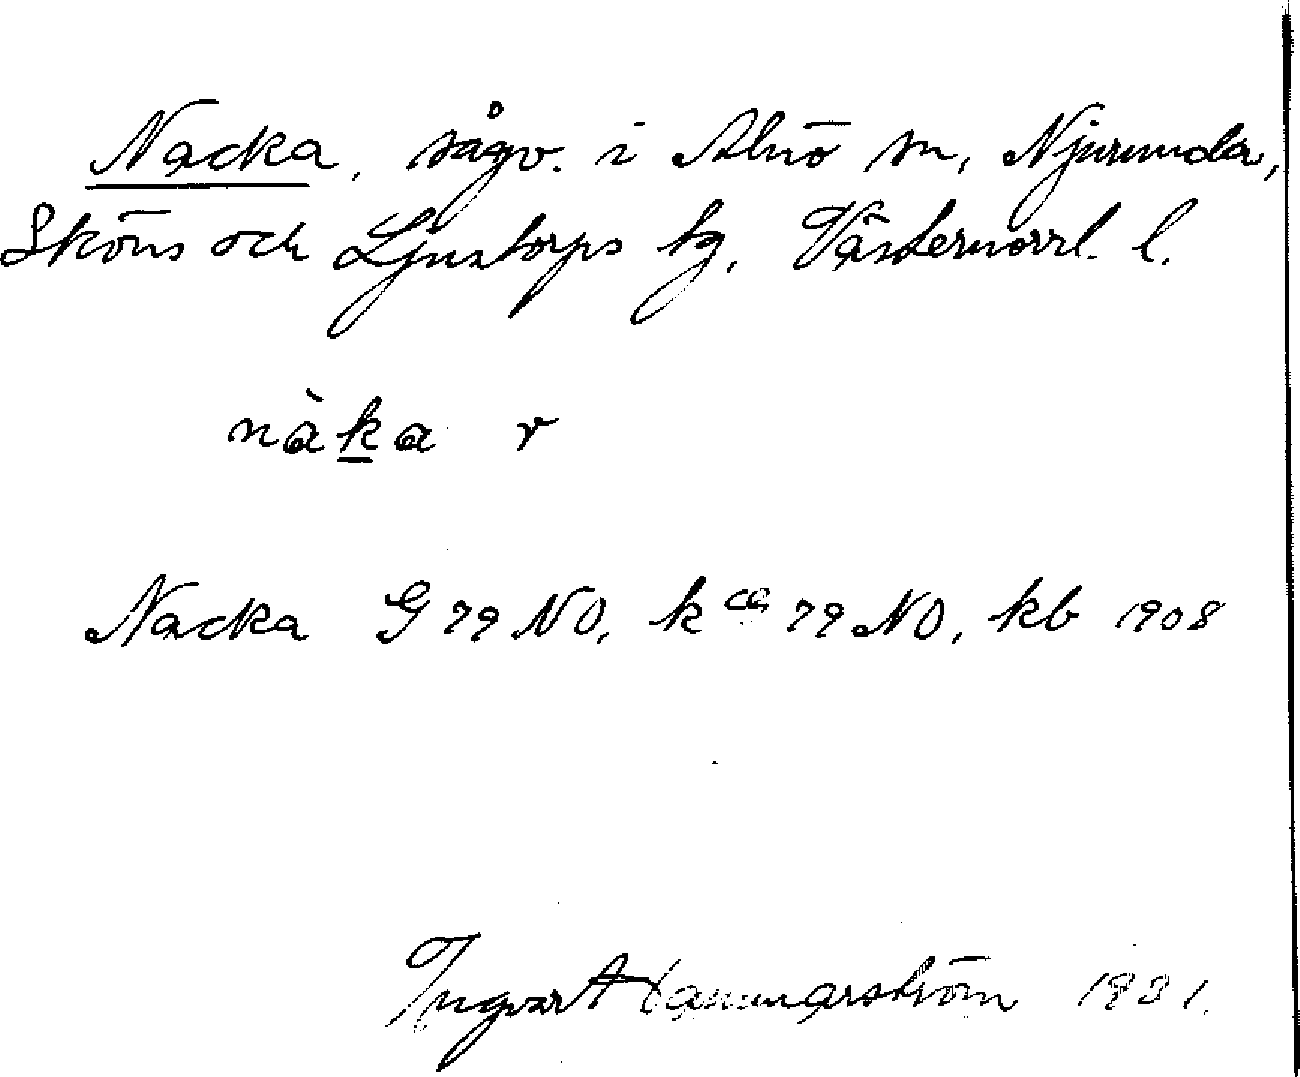 Nacka, sågv. i Alnö sn, Njurunda,
Sköns och Ljustorps tg, Västernorrl. l.
nàka r
Nacka G 79 NO, k ca 79 NO, kb 1908
Ingvar Hammarström 1931.